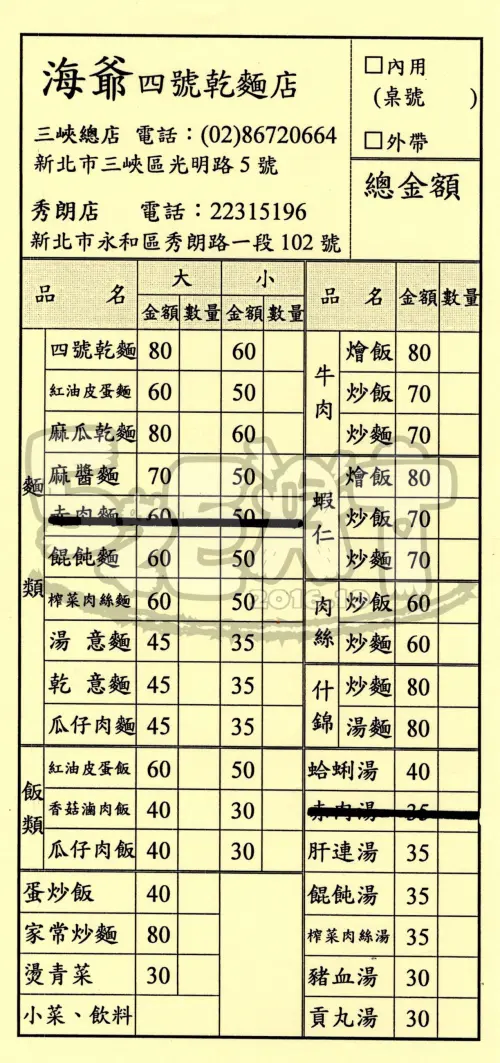 海爺四號乾麵店
三峽總店 電話：(02)86720664
新北市三峽區光明路5號
秀朗店 電話：22315196
新北市永和區秀朗路一段102號
□內用
(桌號 )
□外帶
總金額
品名 大 小
金額 數量 金額 數量
麵類
四號乾麵 80 60
紅油皮蛋麵 60 50
麻瓜乾麵 80 60
麻醬麵 70 50
赤肉麵 60 50
餛飩麵 60 50
榨菜肉絲麵 60 50
湯意麵 45 35
乾意麵 45 35
瓜仔肉麵 45 35
飯類
紅油皮蛋飯 60 50
香菇滷肉飯 40 30
瓜仔肉飯 40 30
蛋炒飯 40
家常炒麵 80
燙青菜 30
小菜、飲料
品名 金額 數量
牛肉
燴飯 80
炒飯 70
炒麵 70
蝦仁
燴飯 80
炒飯 70
炒麵 70
肉絲
炒飯 60
炒麵 60
什錦
炒麵 80
湯麵 80
蛤蜊湯 40
赤肉湯 35
肝連湯 35
餛飩湯 35
榨菜肉絲湯 35
豬血湯 30
貢丸湯 30